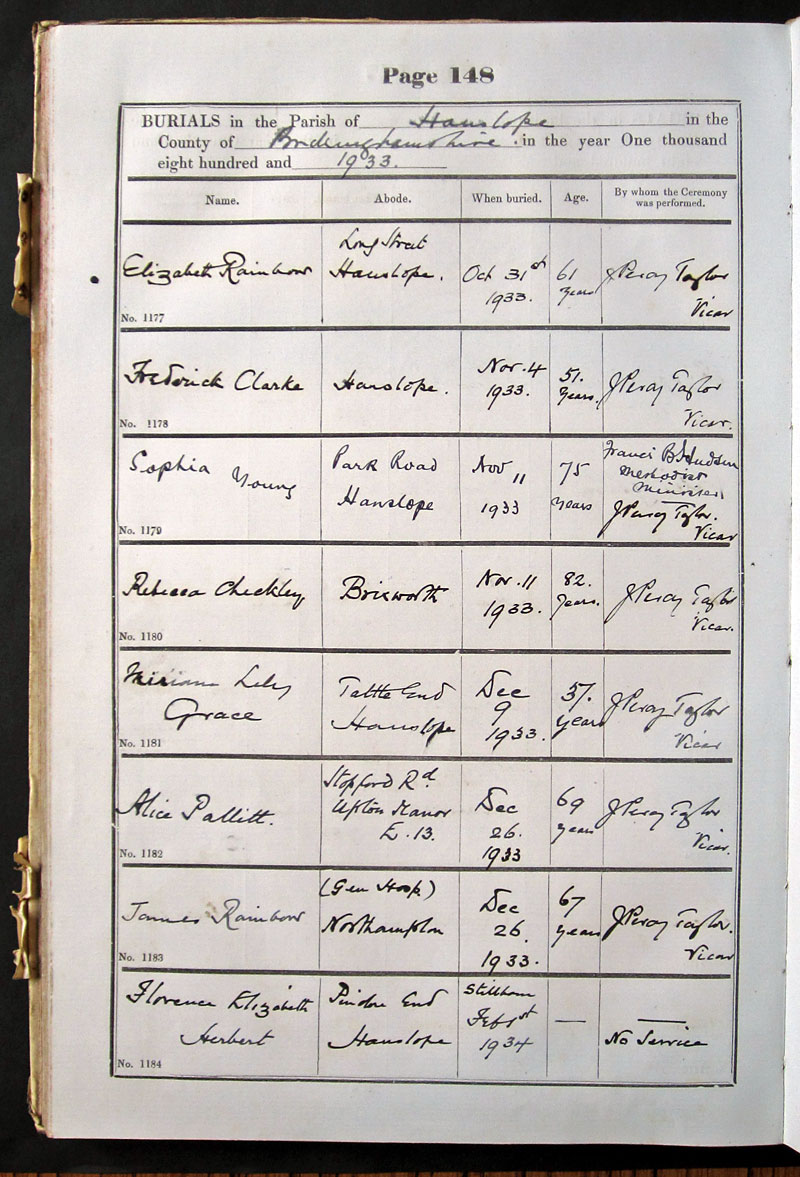 Page 148
BURIALS in the Parish of Hanslope in the
County of Buckinghamshire. in the year One thousand
eight hundred and 1933.
Name. Abode. When buried. Age. By whom the Ceremony was performed.
Long Street
Elizabeth Rainbow Hanslope. Oct 31st 61 J Percy Taylor
1933. years Vicar
No. 1177
Nov. 4 51.
Frederick Clarke Hanslope. 1933. years. J Percy Taylor
Vicar.
No. 1178
Francis B Hudson
Sophia Young Park Road Nov 11 75 Methodist
Minister
Hanslope 1933 years J Percy Taylor.
Vicar
No. 1179
Nov. 11 82.
Rebecca Checkley Brixworth 1933. years. J Percy Taylor
Vicar.
No. 1180
Miriam Lily Tathall End Dec 57.
Grace Hanslope 9 years J Percy Taylor
1933. Vicar
No. 1181
Stopford Rd.
Alice Pallitt. Upton Manor Dec 69 J Percy Taylor
E. 13. 26. years Vicar.
1933
No. 1182
(Gen Hosp) Dec 67
James Rainbow Northampton 26. years J Percy Taylor.
1933. Vicar
No. 1183
Florence Elizabeth End Stillborn
Herbert Hanslope Feb 1st — —
1934 No Service
No. 1184